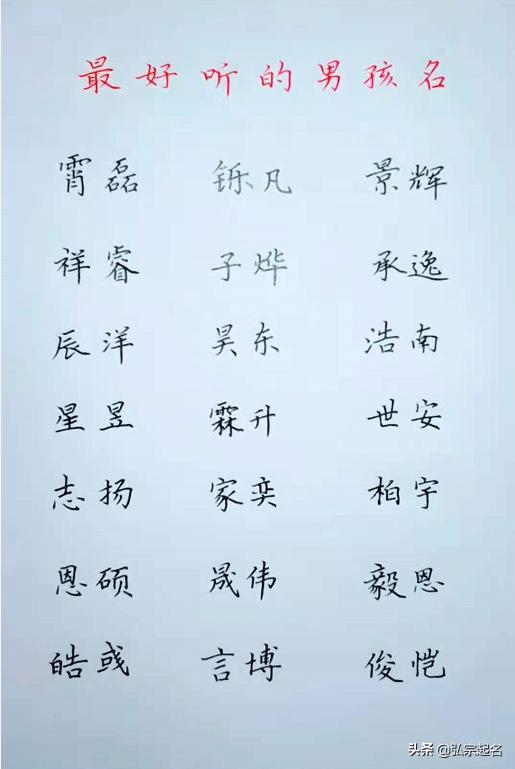 最好听的男孩名
霄磊 铄凡 景辉
祥睿 子烨 承逸
辰洋 昊东 浩南
星昱 霖升 世安
志扬 家奕 柏宇
恩硕 晟伟 毅恩
皓彧 言博 俊恺
头条 @弘宗起名